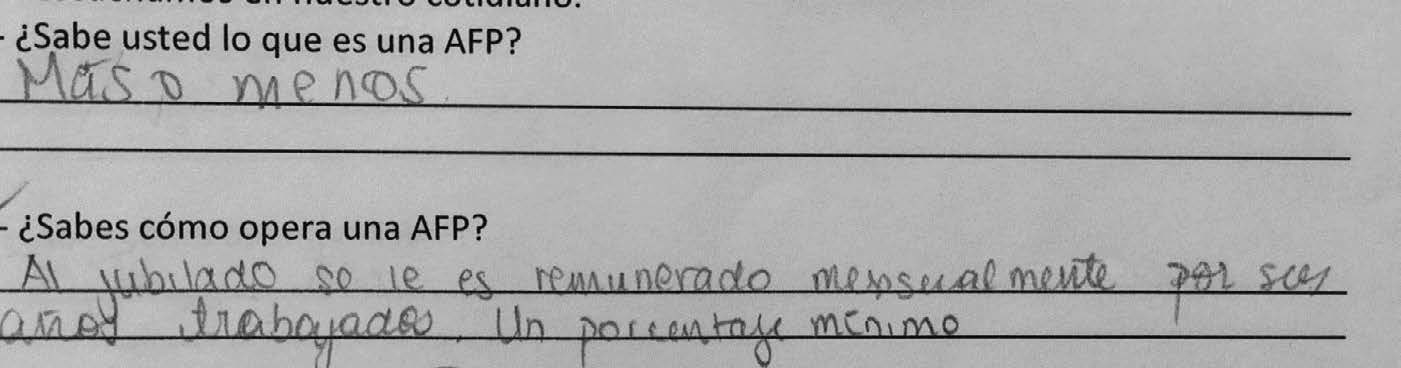 - ¿Sabe usted lo que es una AFP?
Más o menos.
- ¿Sabes cómo opera una AFP?
Al jubilado so le es remunerado mensualmente por sus
años trabajados. Un porcentaje mínimo